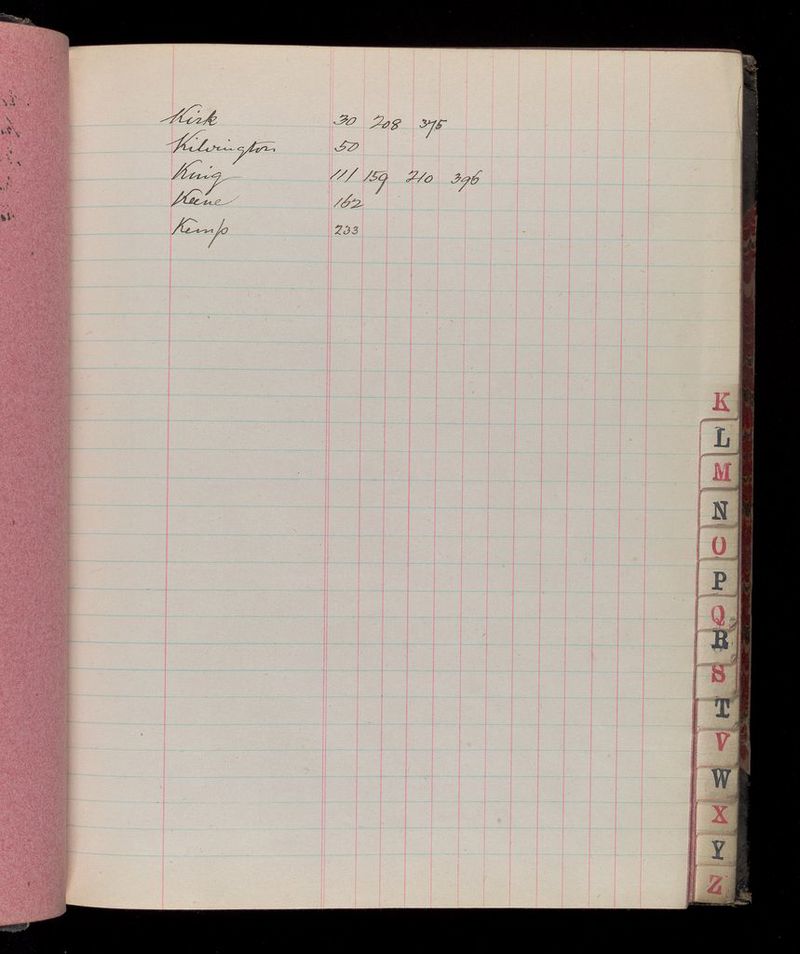 Kirk 30 208 375
Kilvington 50
King 111 159 210 396
Keene 162
Kemp 233
K
L
M
N
O
P
Q
R
S
T
V
W
X
Y
Z